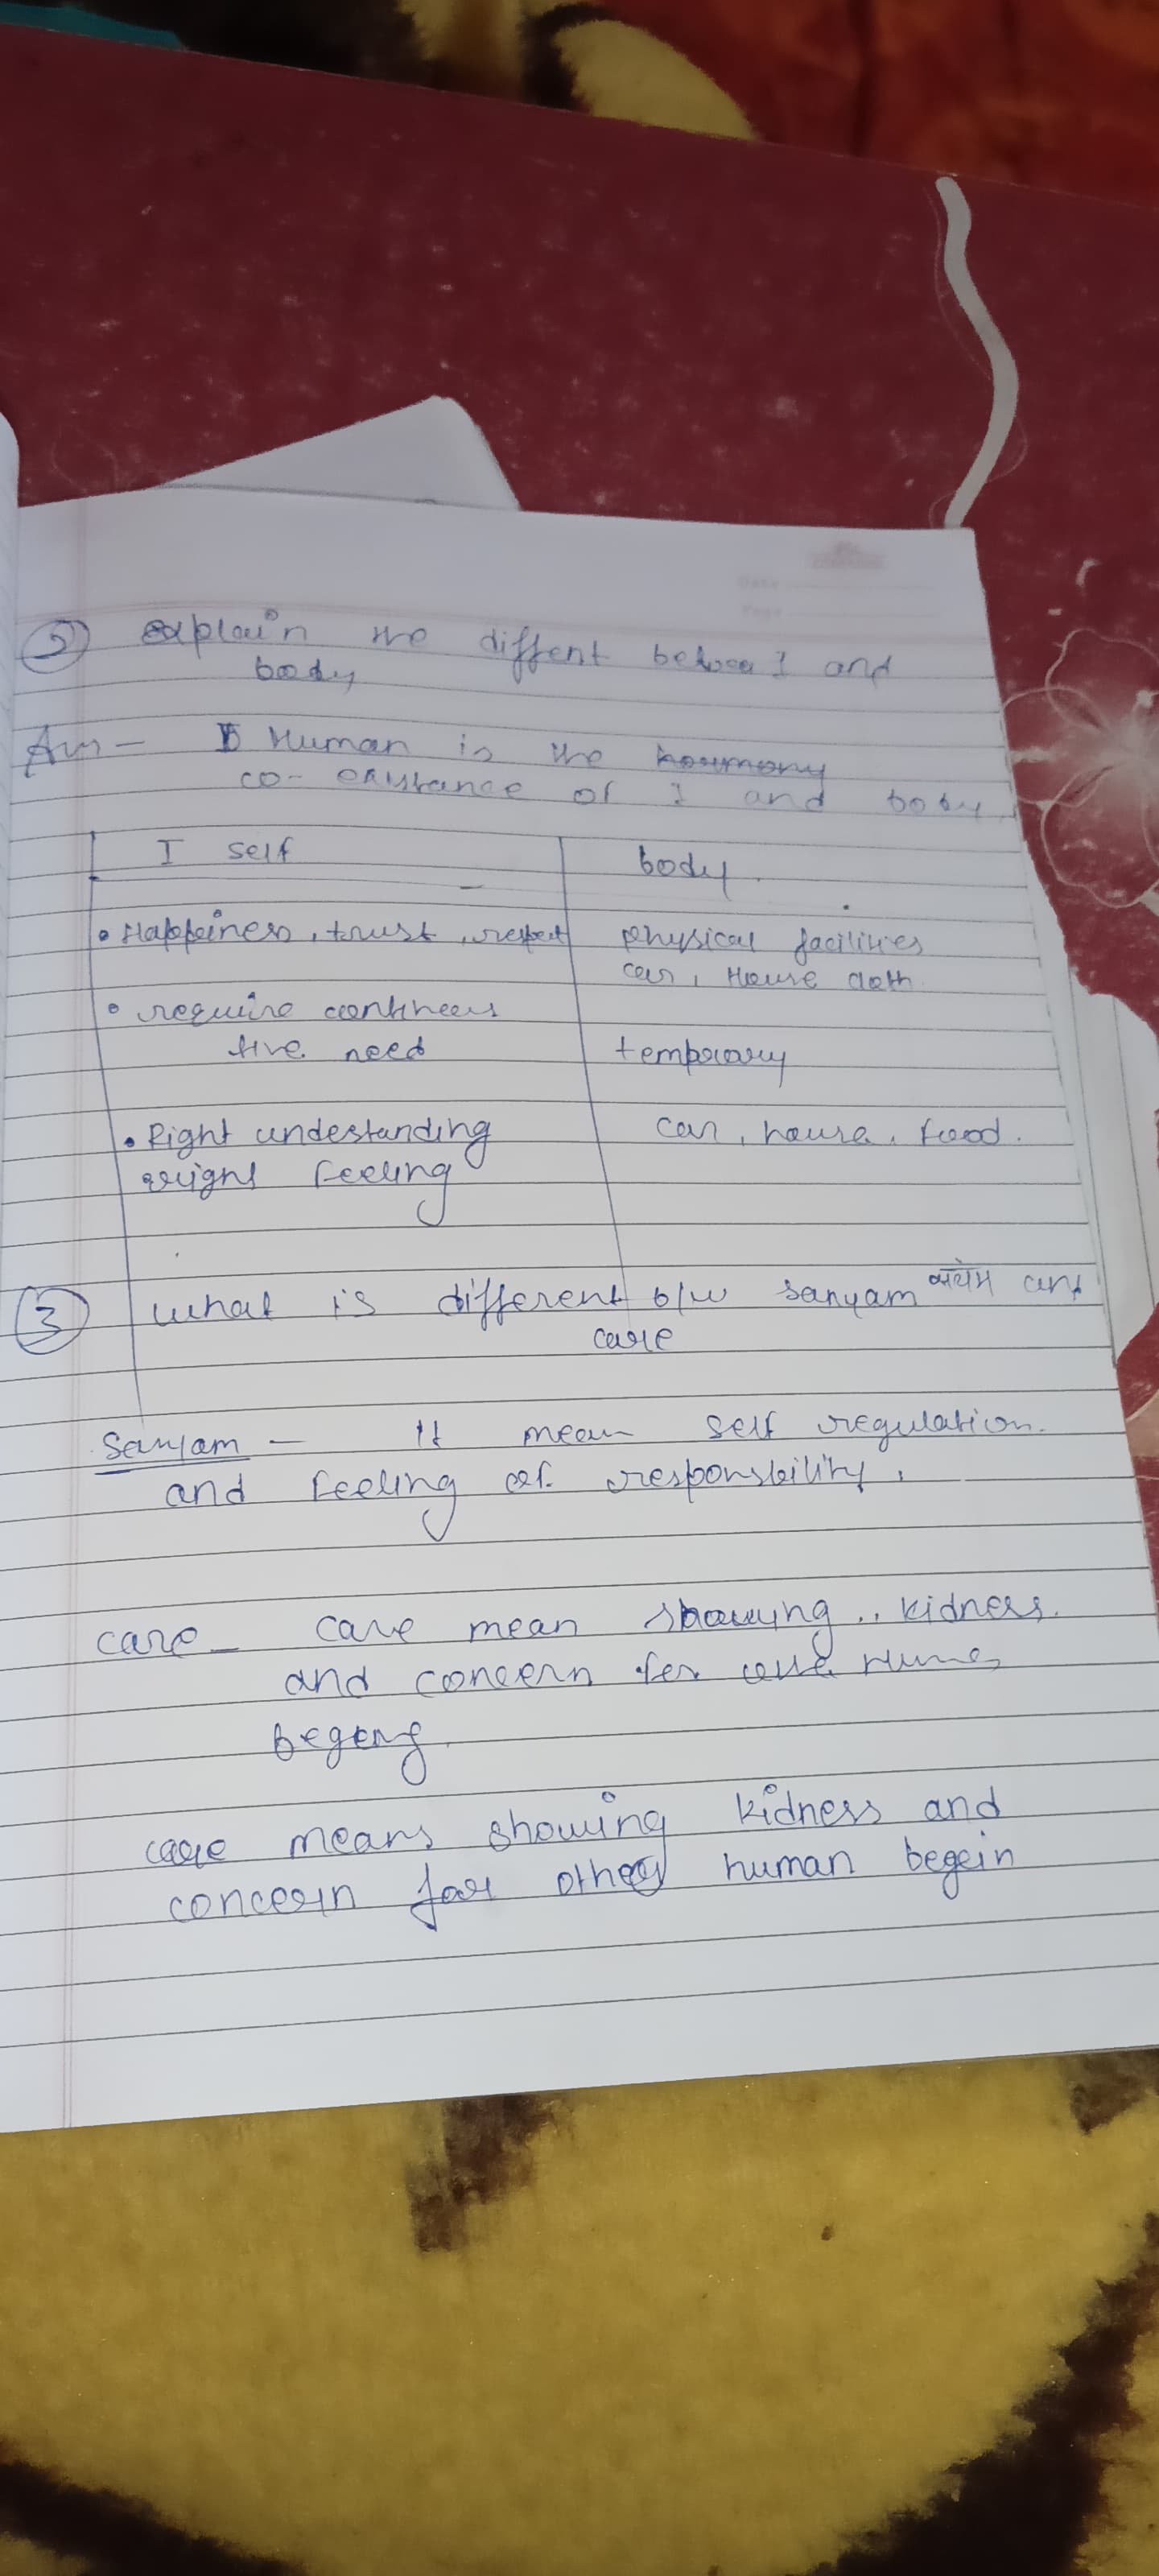 2 explain the diffent betwee I and
body
Ans - Human is the harmony
co-existance of I and body.
I self body
• Happeiness, trust, respect physical facilities
car, House cloth
• require continees
tive need temprary
• Right undestanding car, house, food.
right feeling
3 what is different b/w sanyam and
care
Sanyam - It mean self regulation.
and feeling of responsbility.
care - care mean showing kidness
and concern for
care means showing kidness and
concern for other human begein